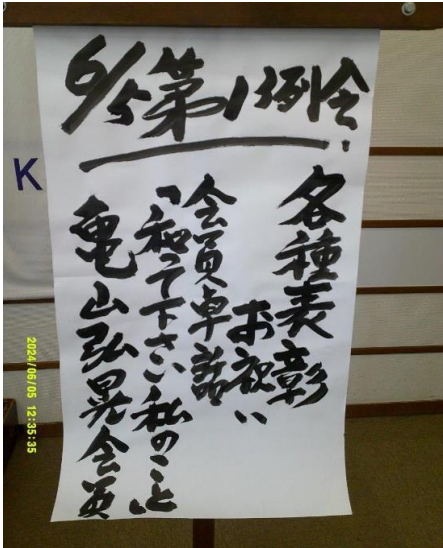 6/5 第1例会
各種表彰
お祝い
会員卓話
「知って下さい私のこと」
亀山弘晃会員
K
2024/06/05 12:35:35